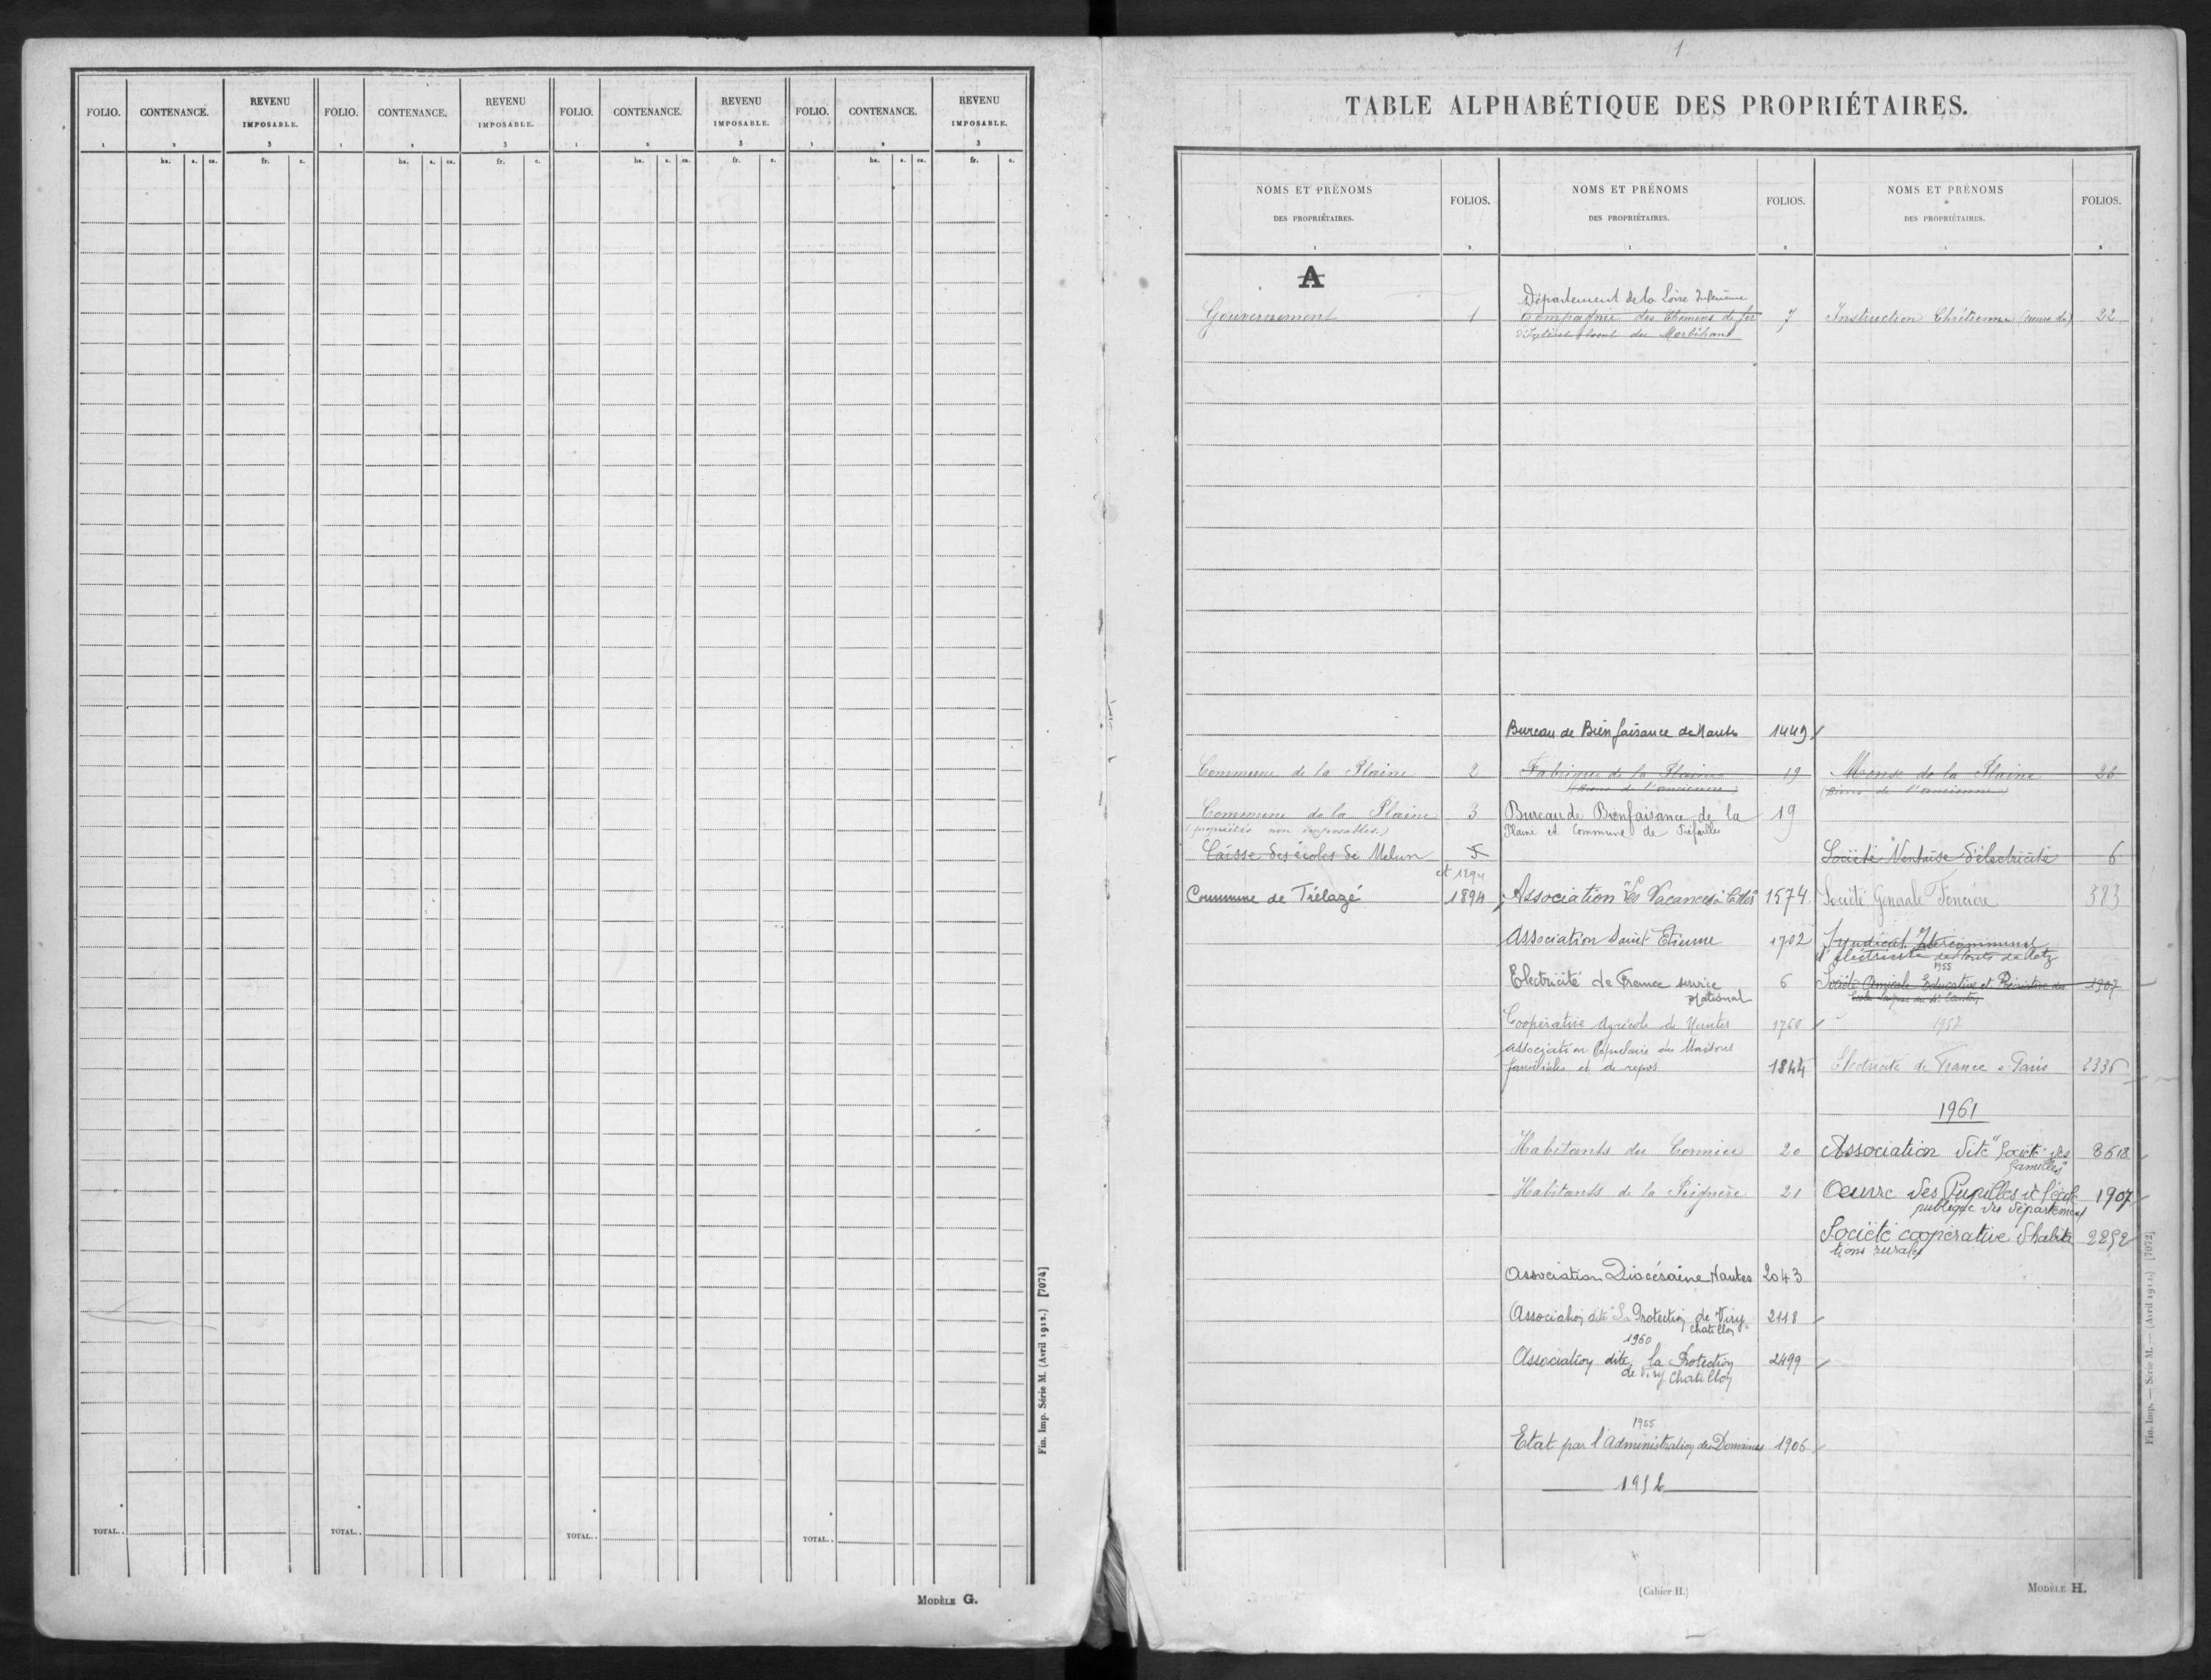 FOLIO. CONTENANCE. REVENU IMPOSABLE. FOLIO. CONTENANCE. REVENU IMPOSABLE. FOLIO. CONTENANCE. REVENU IMPOSABLE. FOLIO. CONTENANCE. REVENU IMPOSABLE.
1 2 3 1 2 3 1 2 3 1 2 3
ha. a. ca. fr. c. ha. a. ca. fr. c. ha. a. ca. fr. c. ha. a. ca. fr. c.
TOTAL.. TOTAL.. TOTAL.. TOTAL..
Fin. Imp. Série M. (Avril 1912.) [7074]
MODÈLE G.
1
TABLE ALPHABÉTIQUE DES PROPRIÉTAIRES.
NOMS ET PRÉNOMS DES PROPRIÉTAIRES. FOLIOS. NOMS ET PRÉNOMS DES PROPRIÉTAIRES. FOLIOS. NOMS ET PRÉNOMS DES PROPRIÉTAIRES. FOLIOS.
1 2 1 2 1 2
A
Gouvernement 1
Commune de la Plaine 2
Commune de la Plaine 3
(propriétés non imposables.)
Caisse des écoles de Melun 5
et 1294
Commune de Trélazé 1894
Département de la Loire Inférieure
Compagnie des Chemins de fer 7
d'Intérêt local du Morbihan
Bureau de Bienfaisance de Nantes 1449
Fabrique de la Plaine 19
(Biens de l'ancienne)
Bureau de Bienfaisance de la 19
Plaine et Commune de Préfailles
Association "Les Vacances 1574
Association Saint Etienne 1702
Electricité de France service 6
National
Coopérative Agricole de Nantes 1760
Association Populaire des Maisons
familiales et de repos 1844
Habitants du Cormier 20
Habitants de la 21
Association Diocésaine Nantes 2043
Association dite La Protection de Viry 2118
Chatillon
1960
Association dite la Protection 2499
de Viry Chatillon
1955
Etat par l'Administration des Domaines 1906
Instruction Chrétienne 22
Mense de la Plaine 23
(Biens de l'ancienne)
Société Nantaise d'électricité 6
Société Générale Foncière 383
Syndicat Intercommunal
d'électricité de Retz
1955
Société Amicale Educative et 1907
Electricité de France à Paris 2336
1961
Association dite "Société des
familles"
Oeuvre des Pupilles de l'école 1907
publique du département
Société coopérative d'habita 2252
tions rurales
(Cahier H.)
MODÈLE H.
Fin. Imp. — Série M. — (Avril 1912.) [7072]